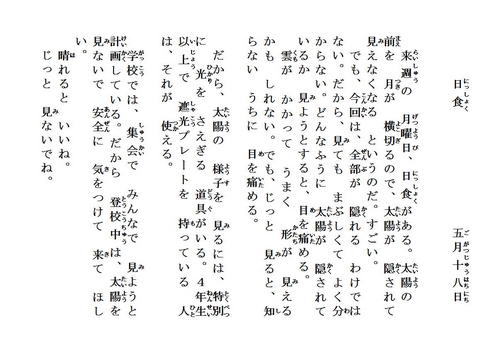 日食　五月十八日
来週の　月曜日、日食がある。太陽の
前を　月が　横切るので、太陽が　隠されて
見えなくなる　というのだ。すごい。
でも、今回は、全部が　隠れる　わけでは
ない。だから、見ても　まぶしくて　よく　分
からない。どんなふうに　太陽が　隠されて
いるか　見ようとすると、目を痛める。
雲が　かかって　うまく　形が　見える
かも　しれない。でも、じっと　見ると、知
らない　うちに　目を痛める。
だから、太陽の　様子を　見るには、特別
に　光を　さえぎる　道具がいる。４年生
以上で　遮光プレートを　持っている　人
は、それが　使える。
学校では、集会で　みんなで　見ようと
計画している。だから　登校中は、太陽を
見ないで　安全に　気をつけて　来て　ほし
い。
晴れると　いいね。
じっと　見ないでね。